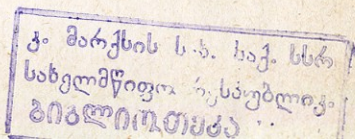 კ. მარქსის ს.ხ. საქ. სსრ
სახელმწიფო რესპუბლიკ.
ბიბლიოთეკა